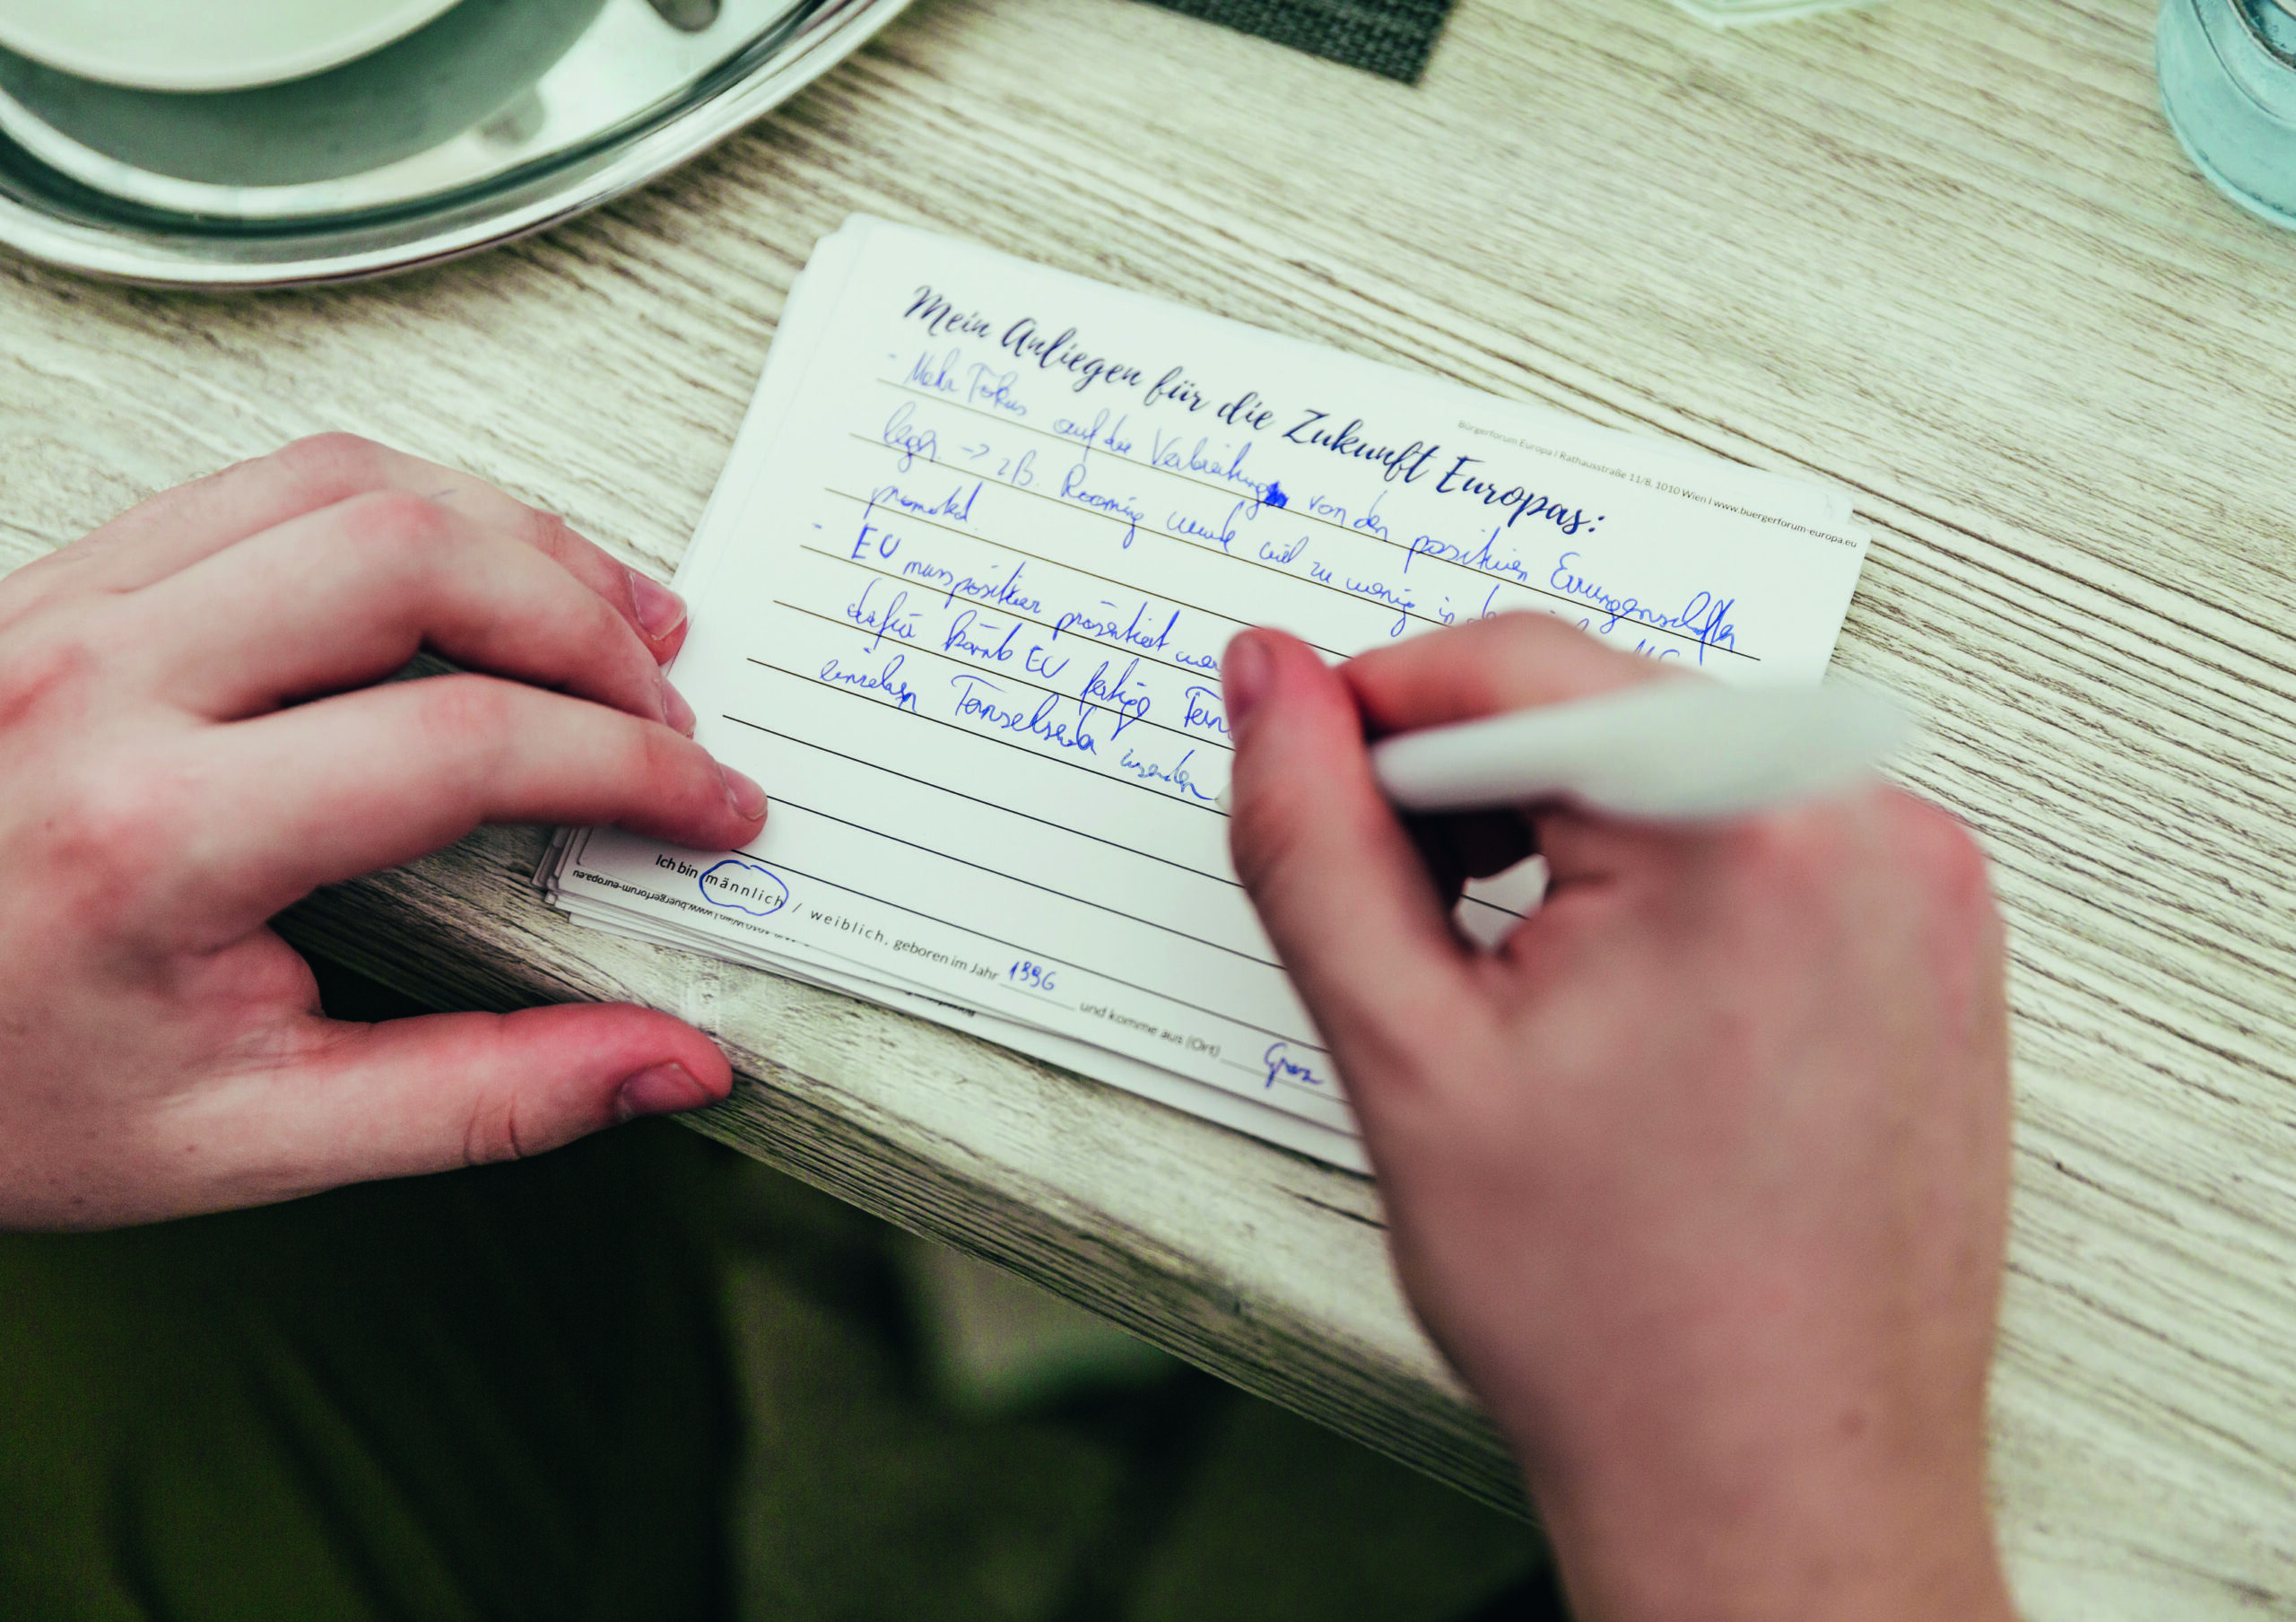 Bürgerforum Europa | Rathausstraße 11/8, 1010 Wien | www.buergerforum-europa.eu
Mein Anliegen für die Zukunft Europas:
- Mehr Fokus auf die Verbreitung von den positiven Errungenschaften
legen. -> zB. Roaming wurde viel zu wenig in
promoted.
- EU muss positiver präsentiert
dafür könnte EU fertige
einzelnen Fernsehsender
Ich bin männlich / weiblich, geboren im Jahr 1996 und komme aus (Ort) Graz
www.buergerforum-europa.eu